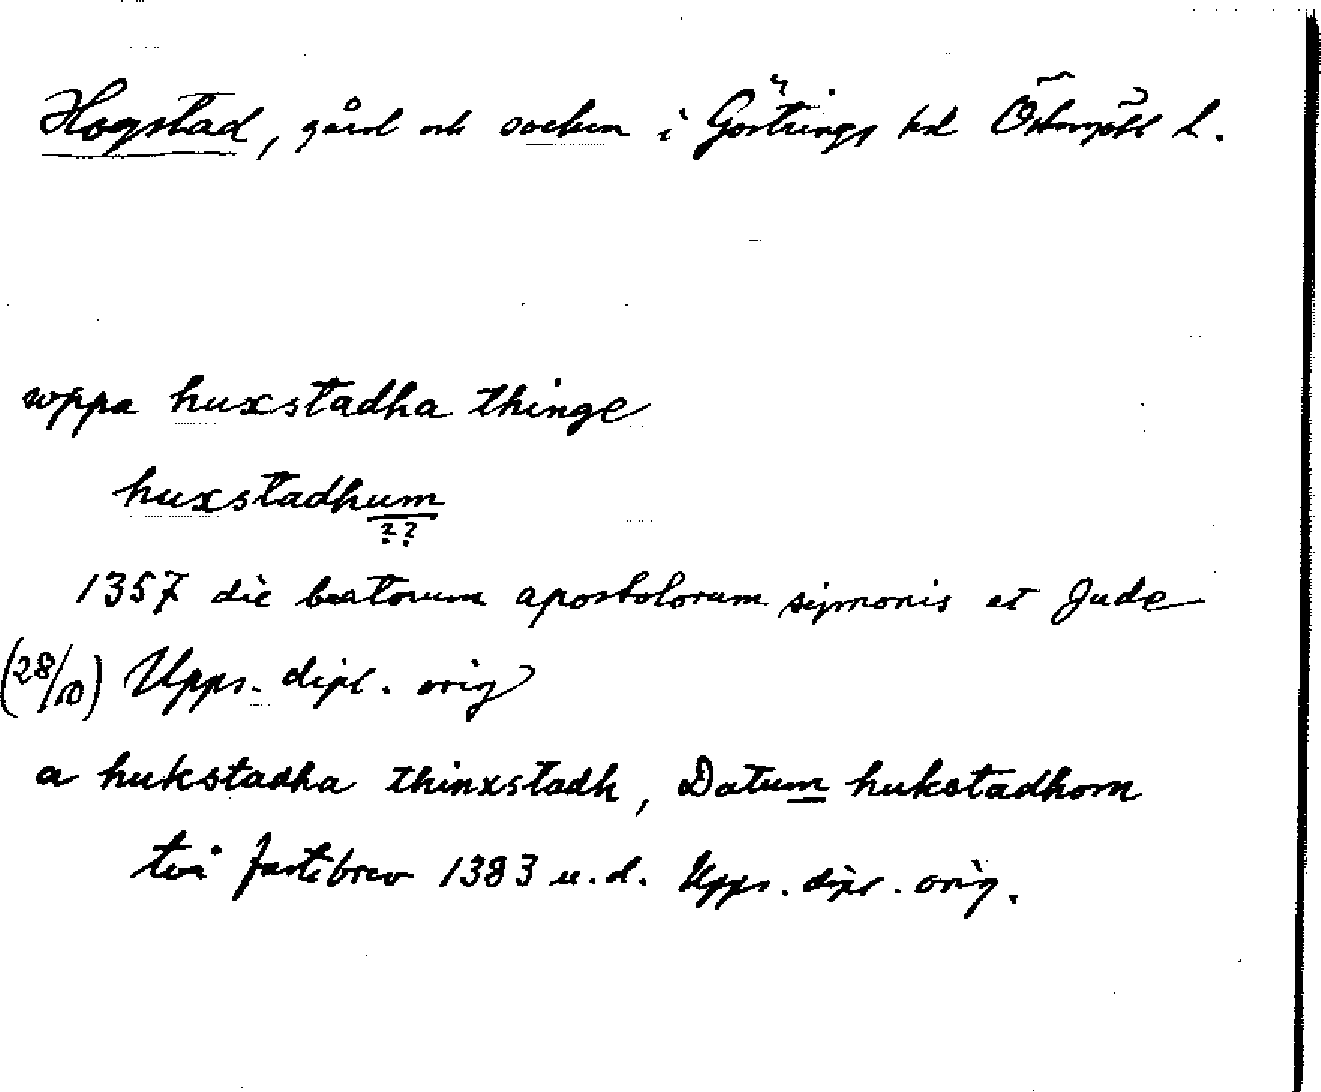 Hogstad, gård och socken i Göstrings hd Östergötl L.
wppa huxstadha thinge
huxstadhum
??
1357 die beatorum apostolorum symonis et Jude
(28/10) Upps. dipl. orig
a hukstadha thinxstadh, Datum hukstadhom
två fastebrev 1383 u.d. Upps. dipl. orig.